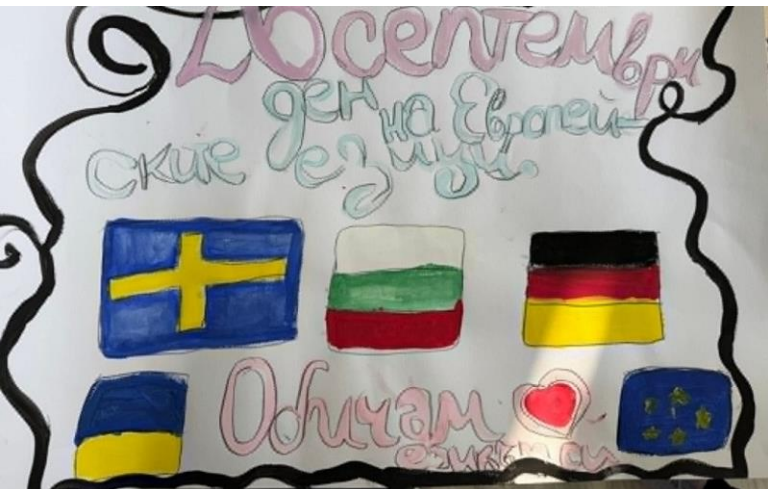 26 септември
ден на Европей-
ские езици.
Обичам
езикът си